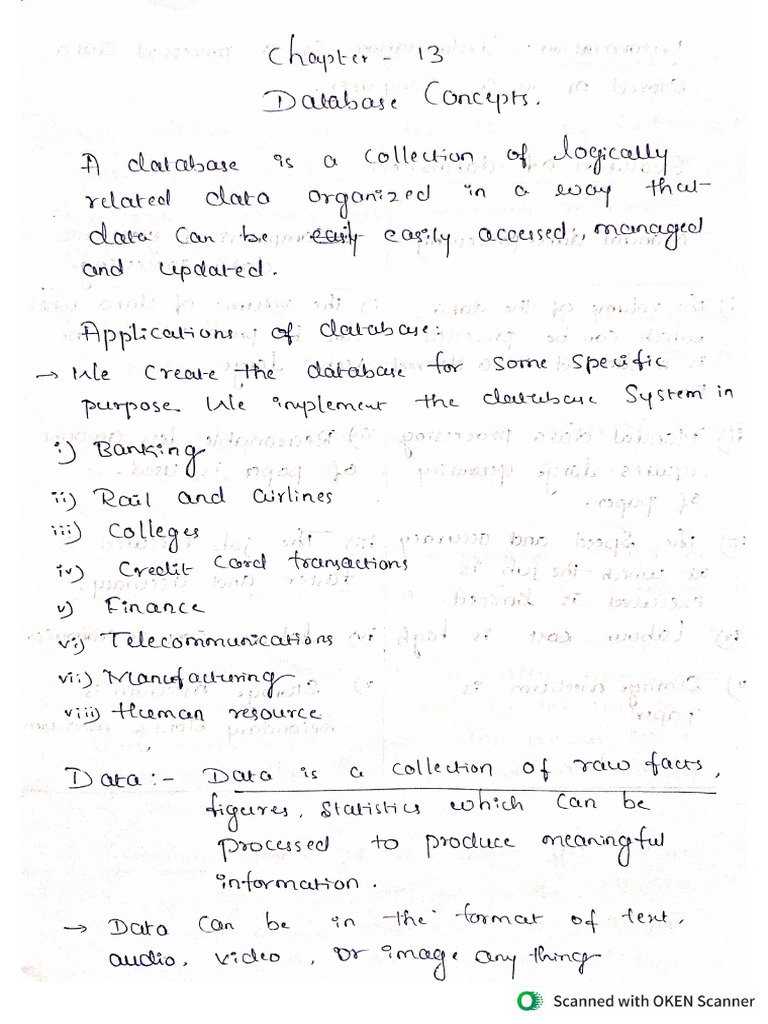 Chapter - 13
Database Concepts.
A database is a collection of logically
related data organized in a way that
data can be easily easily accessed, managed
and updated.
Applications of database:
→ We create the database for some specific
purpose. We implement the database System in
i) Banking
ii) Rail and airlines
iii) Colleges
iv) Credit card transactions
v) Finance
vi) Telecommunications
vii) Manufacturing.
viii) Human resource
Data:- Data is a collection of raw facts,
figures, statistics which can be
processed to produce meaningful
information.
→ Data can be in the format of text,
audio, video, or image any thing
Scanned with OKEN Scanner